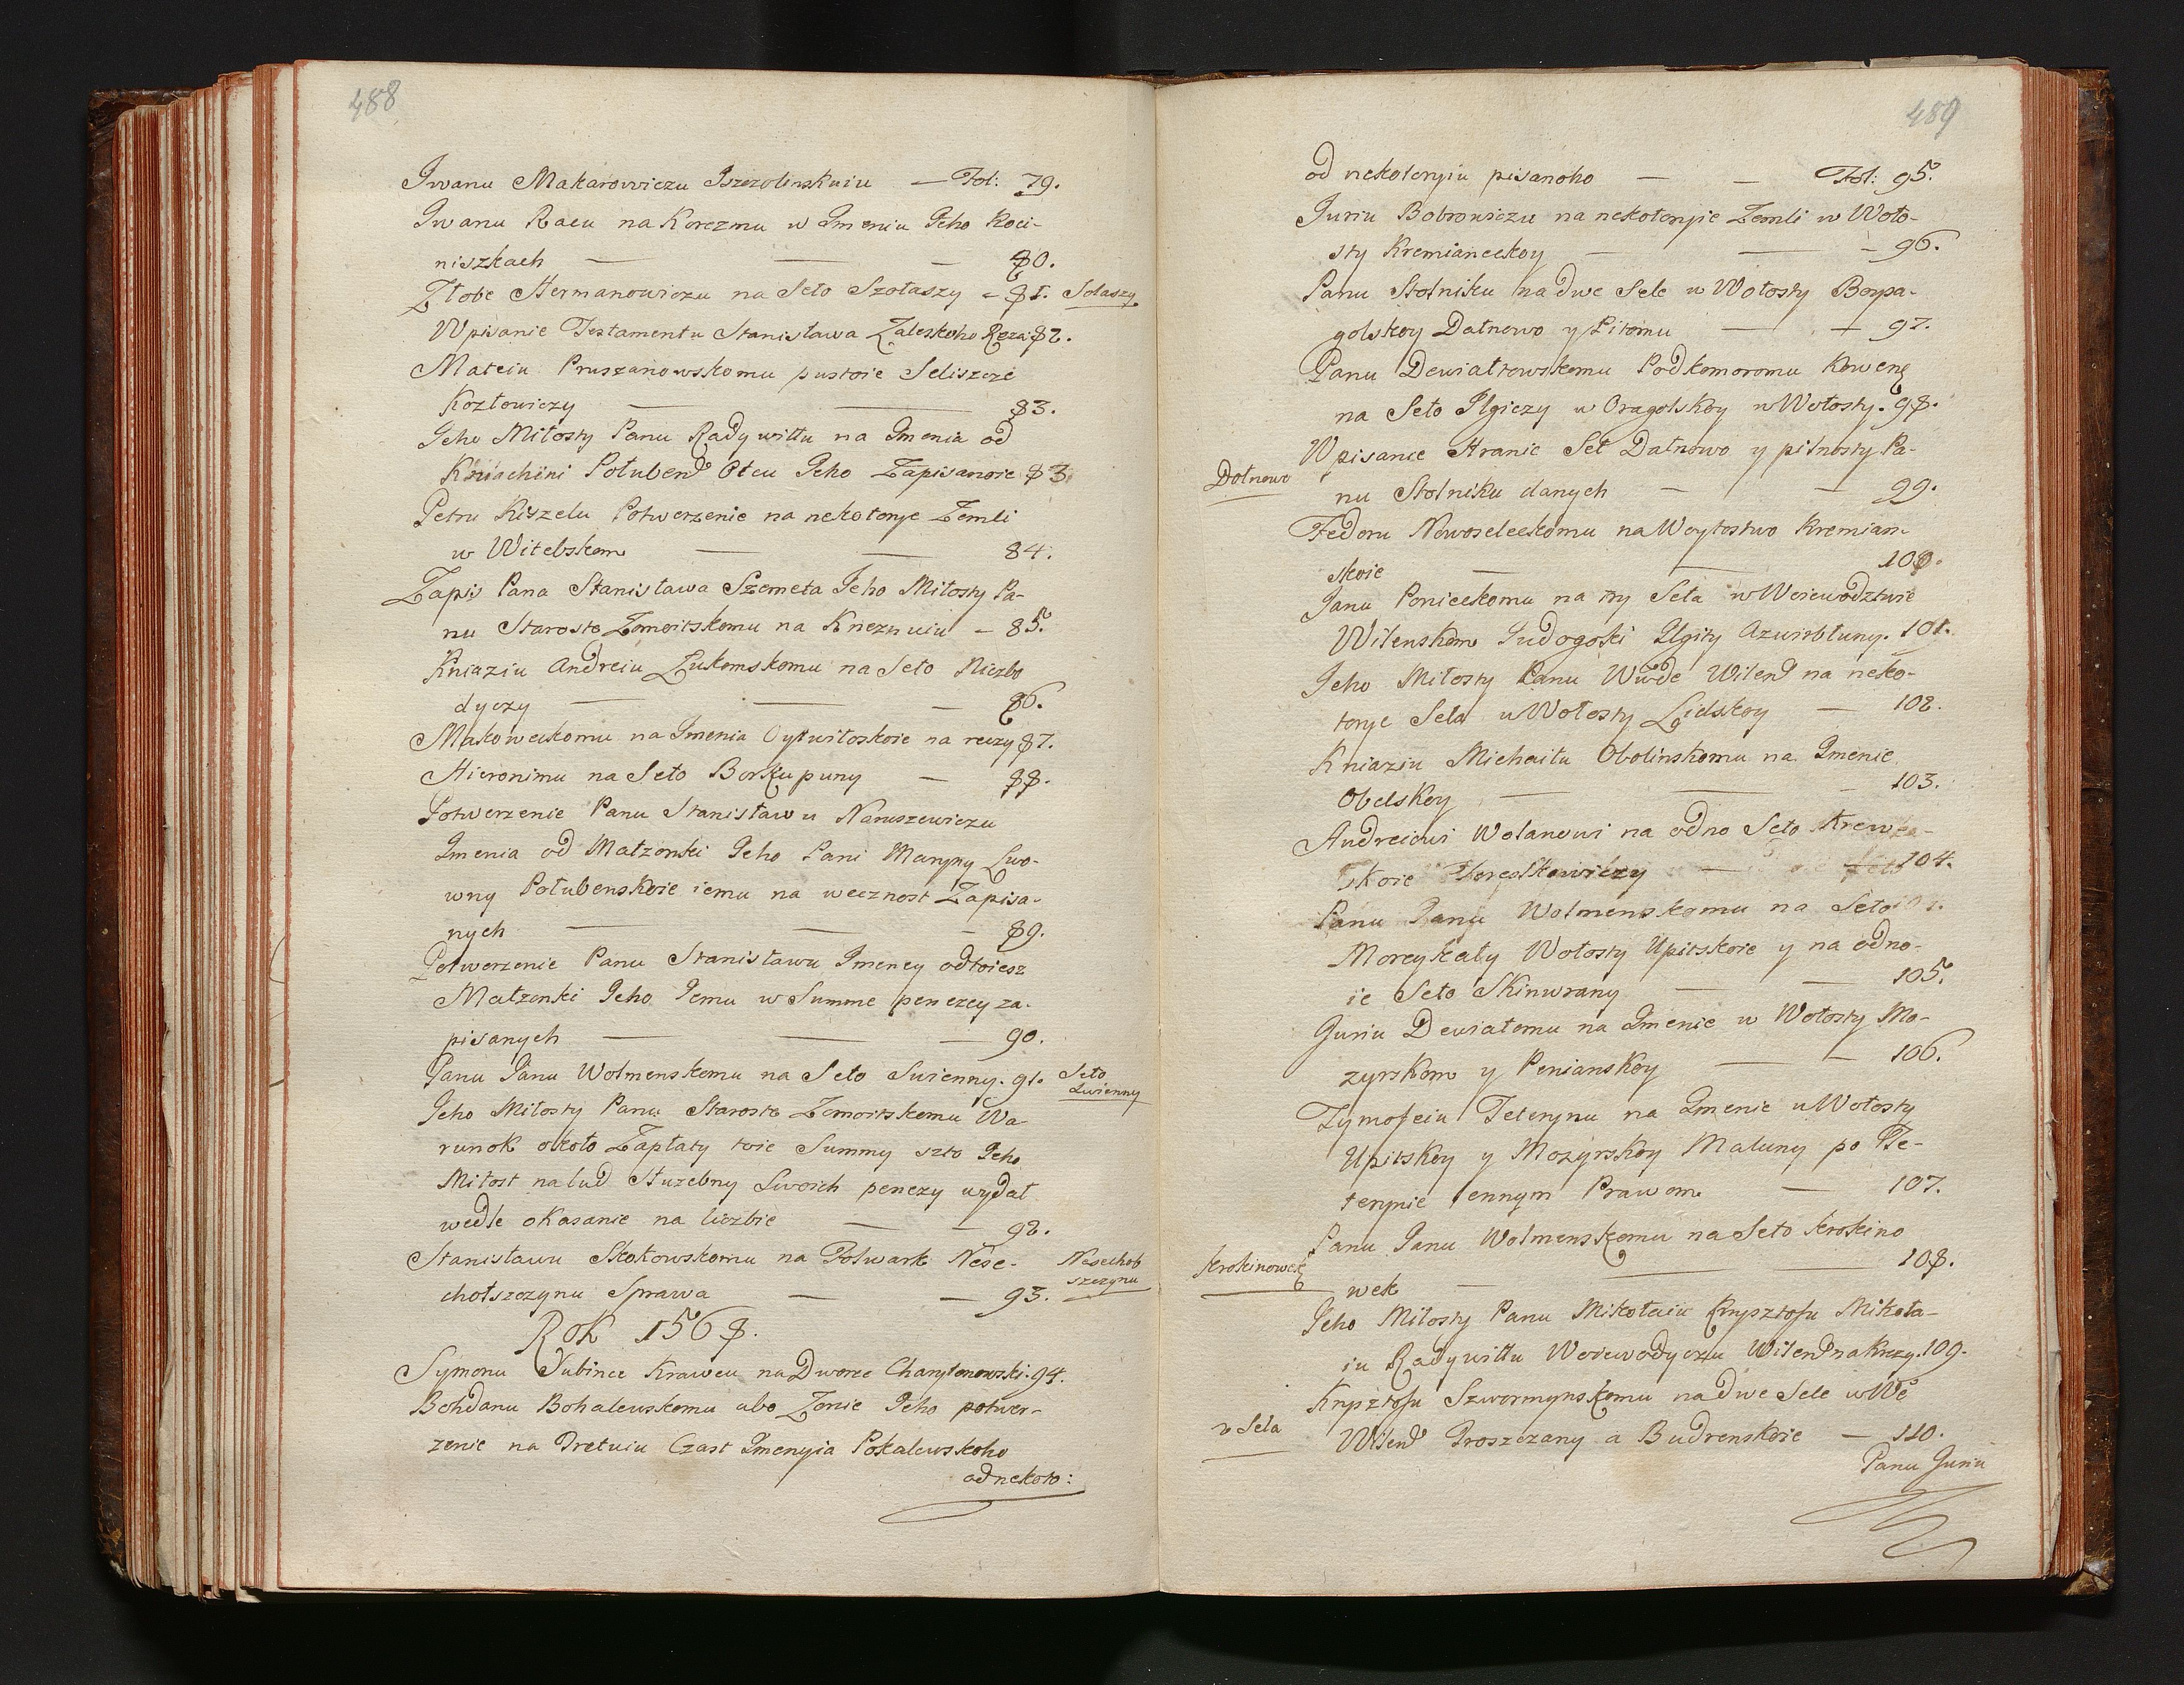 488
Iwanu Makarowiczu Iszczolinskuiu — Fol: 79.
Iwanu Racu na Korczmu w Imeniu Jeho Roci-
niszkach — — — 80.
Złobe Hermanowiczu na Seło Szołaszy - 81. Sołaszy
Wpisanie Testamentu Stanisława Zaleskoho Reza: 82.
Mateiu Pruszanowskomu pustoie Seliszcze
Kozłowiczy — — 83.
Jeho Miłosty Panu Radywiłłu na Imenia od
Kniachini Połubend Otcu Jeho Zapisanoie 83.
Petru Kiszelu Potwerzenie na nekotorye Zemli
w Witebskom — — 84.
Zapis Pana Stanisława Szemeta Jeho Miłosty Pa-
nu Starosto Zomoitskomu na Kneznuiu - 85.
Kniaziu Andreiu Łukomskomu na Seło Niezbo
dyczy — — — 86.
Makoweckomu na Imenia Oytwiłoskoie na reczy 87.
Hieronimu na Seło Borkupuny — 88.
Potwerzenie Panu Stanisławu Naruszewiczu
Imenia od Małzonki Jeho Pani Maryny Lwo-
wny Połubenskoie iemu na wecznost Zapisa-
nych — — — 89.
Potwerzenie Panu Stanisławu Imeney odtoiesz
Małzonki Jeho Jemu w Summe penezey za-
pisanych — — — 90.
Panu Janu Wolmenskomu na Seło Swienny. 91. Seło
Swienny
Jeho Miłosty Panu Starosto Zomoitskomu Wa-
runok około Zapłaty toie Summy szto Jeho
Miłost na lud Słuzebny Swoich penezy wydał
wedle okasanie na liczbie — — 92.
Stanisławu Skokowskomu na Folwark Nese- Nesechoł
chołszczynu Sprawa — — 93. szczynu
Rok 1568.
Symonu Jubince Krawcu na Dworze Charytonowski. 94.
Bohdanu Bohalewskomu abo Zonie Jeho potwer-
zenie na Tretuiu Czast Imenyia Pokalewskoho
od nekoto:
489
od nekotoryiu pisanoho — — Fol: 95.
Juriu Bobrowiczu na nekotoryie Zemli w Woło-
sty Kremianeckoy — — - 96.
Panu Stolniku na dwe Sele w Wołosty Boypa-
golskoy Datnowo y Pitomu — — 97.
Panu Dewiałtowskomu Podkomoromu Kowens
na Seło Ilgiczy w Oragolskoy w Wołosty. 98.
Wpisance Hranic Seł Datnowo y pilnosty Pa-
Dotnowo
nu Stolniku danych — — 99.
Fedoru Nowoseleckomu na Woytostwo Kremian-
skoie — — 100.
Janu Ponieckomu na try Seła w Woiewodztwie
Wilenskom Judogoski Ilgity Azwirbłuny. 101.
Jeho Miłosty Panu Wwde Wilend na neko-
torye Seła u Wołosty Lidskoy — 102.
Kniaziu Michaiłu Obolinskomu na Imenie
Obelskoy — — - 103.
Andreiowi Wolanowi na odno Seło Krewza-
skoie — 104.
Panu Janu Wolmenskomu na Seło
Moreykały Wołosty Upitskoie y na odno-
ie Seło Skinwrany — — 105.
Juriu Dewiatomu na Imenie w Wołosty Mo-
zyrskom y Penianskoy — — 106.
Tymofeiu Teterynu na Imenie u Wołosty
Upitskoy y Mozyrskoy Maluny po Te-
terynie lennym Prawom — 107.
Panu Janu Wolmenskomu na Seło Krokino
Krokinowek
wek — — — 108.
Jeho Miłosty Panu Mikołaiu Krysztofu Mikoła-
iu Radywiłłu Woiewodyczu Wilend na Krzy. 109.
Krysztofu Szwormynskomu na dwe Sele w We
v Sela
Wilend Proszczany a Budrenskoie — 110.
Panu Juriu